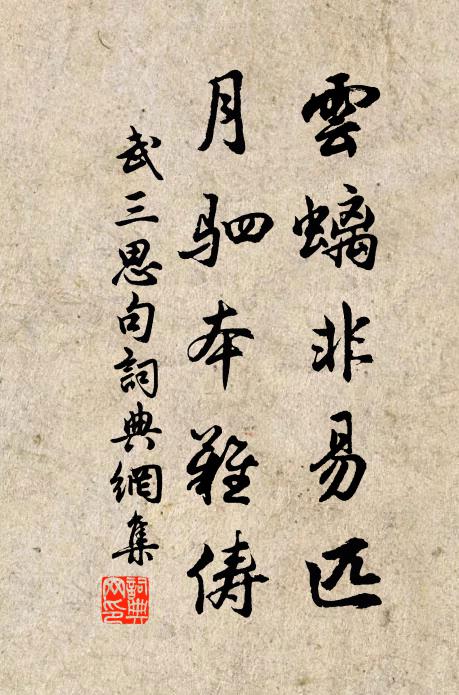 雲螭非易匹
月駟本難儔
武三思句詞典網集
詞典網印